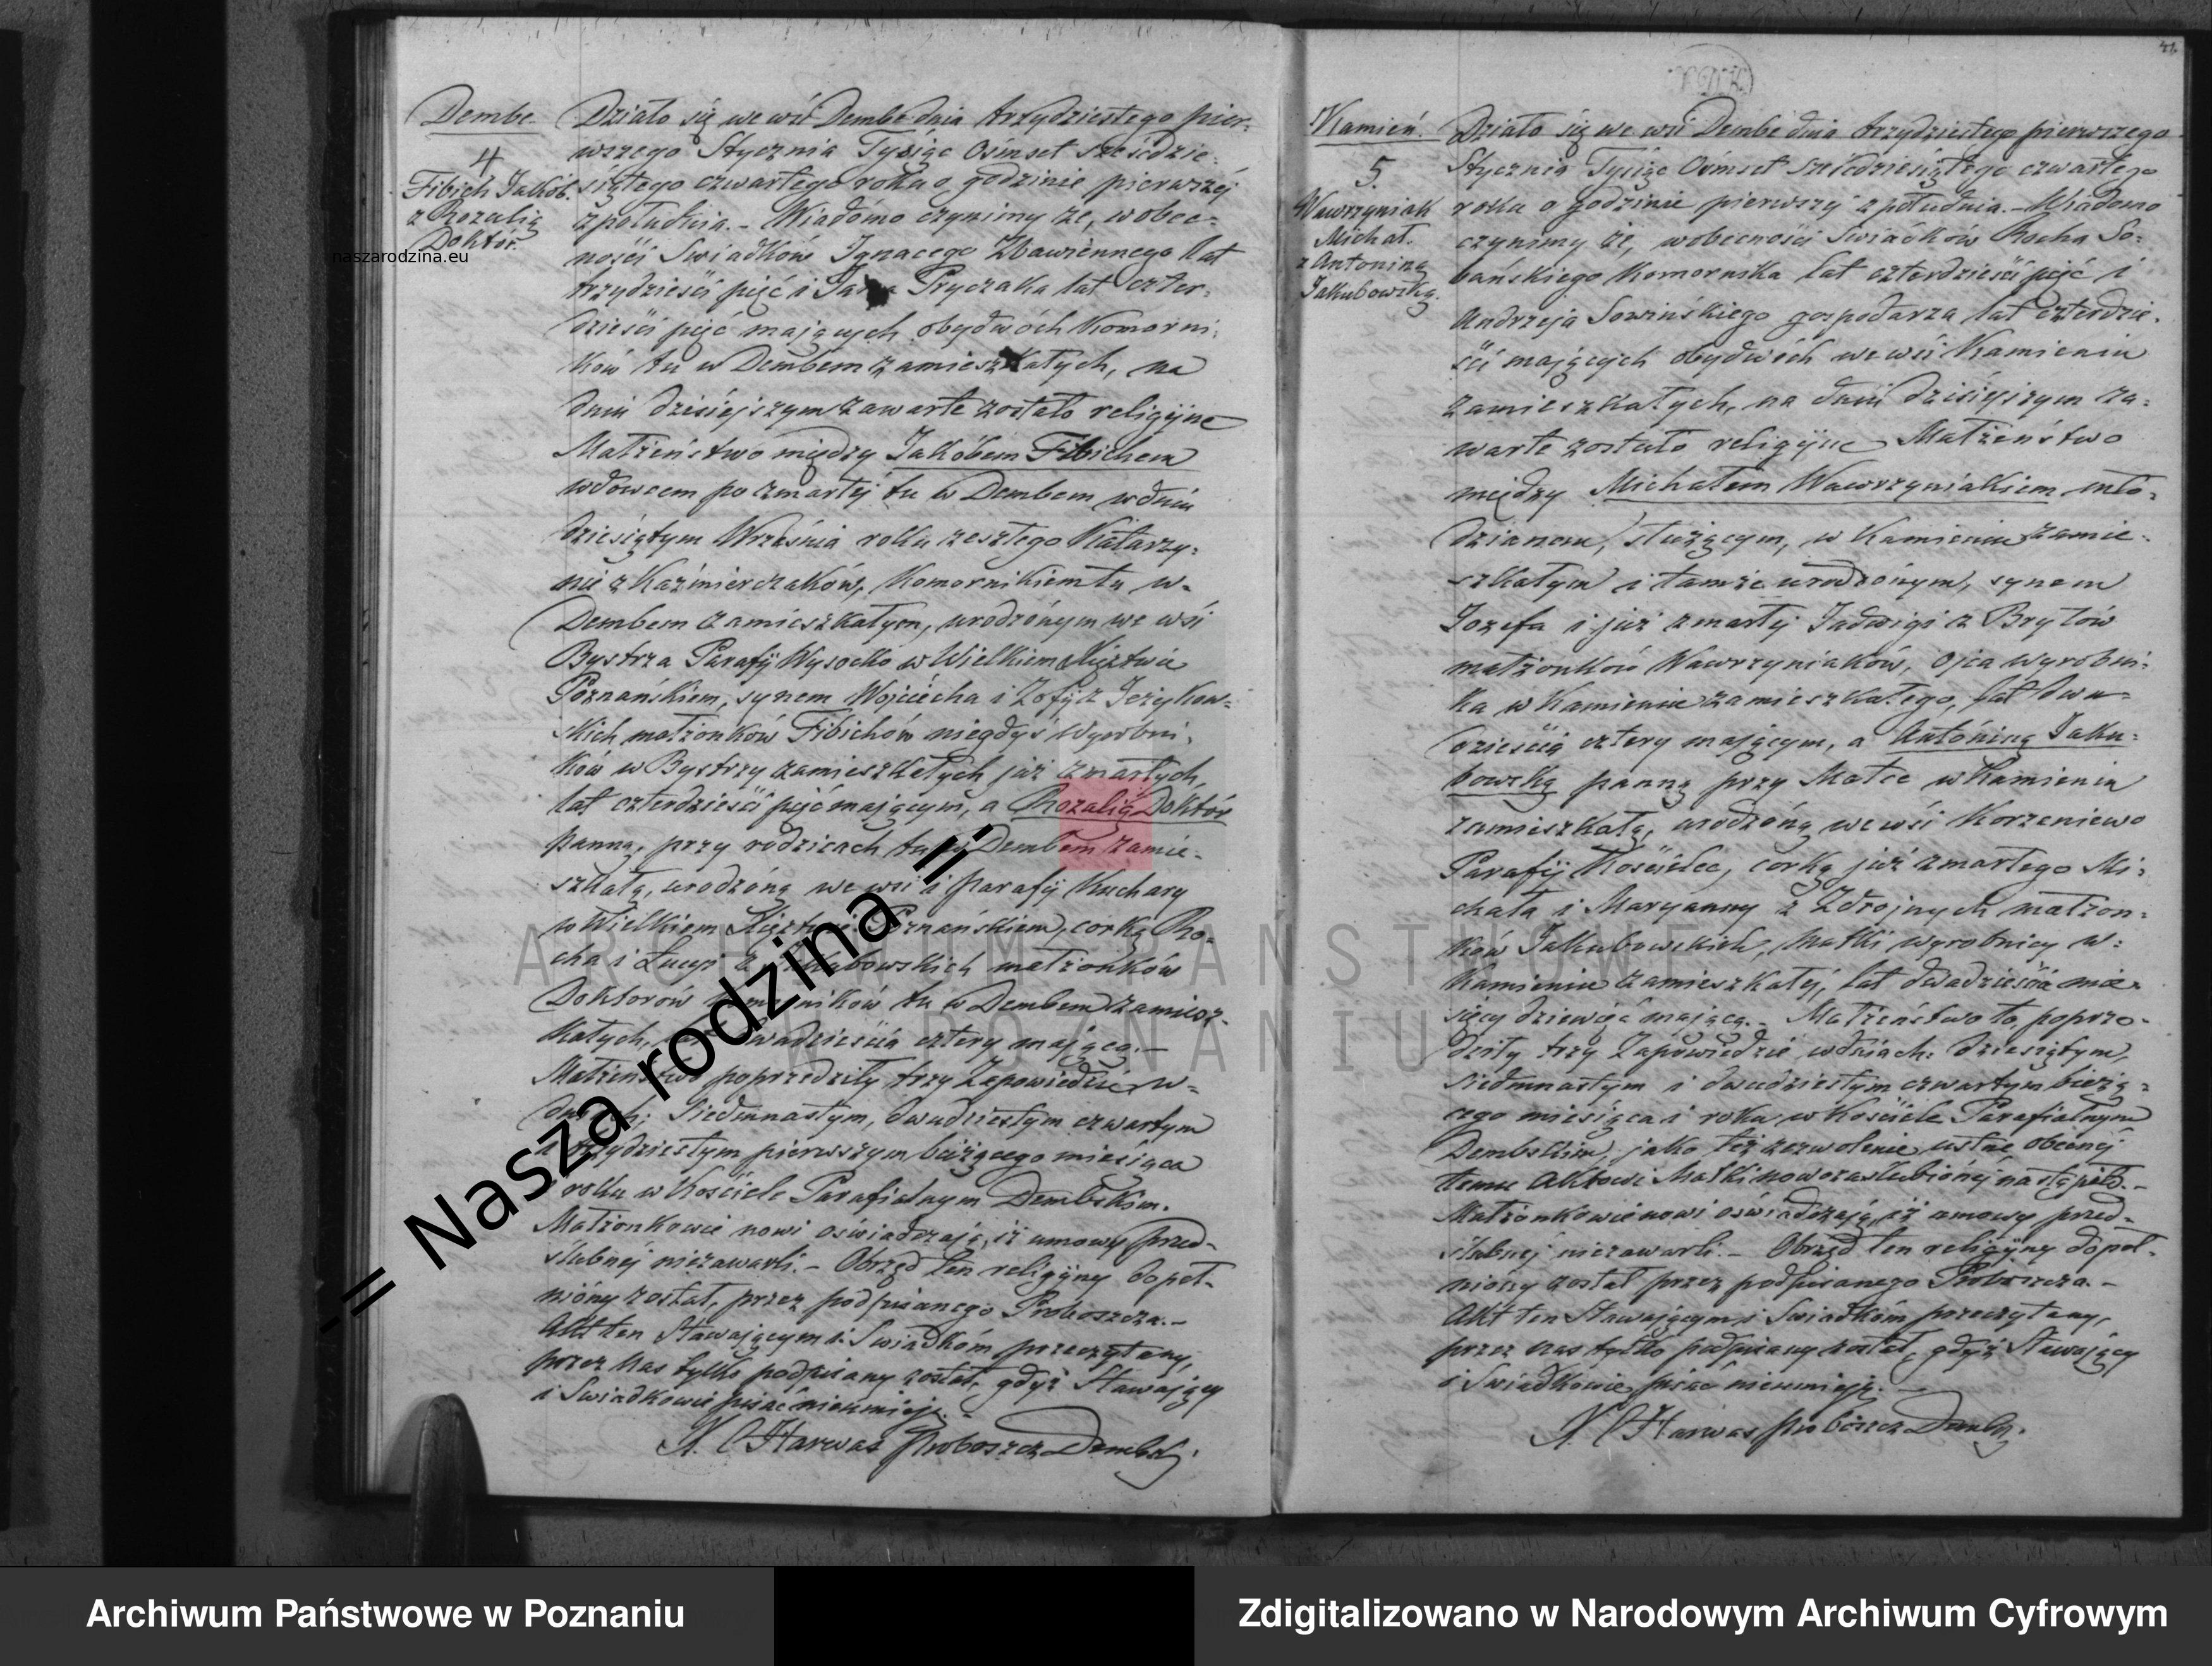 Dembe.
4
Fibich Jakób.
z Rozalią
Doktór.
naszarodzina.eu
Działo się we wsi Dembe dnia trzydziestego pier-
wszego Stycznia Tysiąc Osmset sześćdzie-
siątego czwartego roku o godzinie pierwszéj
z południa. - Wiadomo czynimy że, w obec-
ności Swiadków Ignacego Zbawiennego lat
trzydzieści pięć i Jana Pryczaka lat czter-
dzieści pięć mających obydwóch Komorni-
ków tu w Dembem zamieszkałych, na
dniu dzisiejszym zawarte zostało religijne
Małżeństwo między Jakóbem Fibichem
wdowcem po zmarłéj tu w Dembem w dniu
dziesiątym Września roku zeszłego Katarzy-
nie z Kaźmierczaków, Komornikiem tu w-
Dembem zamieszkałym, urodzónym we wsi
Bystrza Parafij Wysocko w Wielkiem Xięztwie
Poznańskiem, synem Wojciecha i Zofij z Jezykow-
skich małżonków Fibichów niegdyś wyrobni-
ków w Bystrzy zamieszkałych już zmarłych,
lat czterdzieści pięć mającym, a Rozalią Doktór
panną, przy rodzicach tu w Dembem zamie-
szkałą, urodzóną we wsi i parafij Kuchary
w Wielkiem Xięztwie Poznańskiem, córką Ro-
cha i Łucyi z Jakubowskich małżonków
Doktorów Komorników tu w Dembem zamiesz-
kałych, lat dwadzieścia cztery mającą. -
Małżeństwo poprzedziły trzy Zapowiedzie w-
dniach; Siedmnastym, dwudziestym czwartym
i trzydziestym pierwszym bieżącego miesiąca
roku w Kościele Parafialnym Dembskim.
Małżonkowie nowi oświadczają, iż umowy przed-
ślubnéj niezawarli. - Obrzęd ten religijny dopeł-
nióny został, przez podpisanego Proboszcza. -
Akt ten Stawającym i Swiadkóm przeczytany,
przez Nas tylko podpisany został, gdyż Stawający
i Swiadkowie pisać nieumieją. -
X. Harwas Proboszcz Dembski.
-= Nasza rodzina =-
41.
Kamień.
5.
Wawrzyniak
Michał.
z Antoniną
Jakubowską.
Działo się we wsi Dembe dnia trzydziestego pierwszego
Stycznia Tysiąc Osmset Sześćdziesiątego czwartego
roku o godzinie pierwszéj z południa. - Wiadomo
czynimy że, w obecności Swiadków Rocha So-
bańskiego Komornika lat czterdzieści pięć i
Andrzeja Sowińskiego gospodarza lat czterdzie-
ści mających obydwóch we wsi Kamieniu
zamieszkałych, na dniu dzisiejszym za-
warte zostało religijne Małżeństwo
między Michałem Wawrzyniakiem mło-
dzianem, służącym, w Kamieniu zamie-
szkałym i tamże urodzónym, synem
Jozefa i już zmarłéj Jadwigi z Brylów
małżonków Wawrzyniaków, ojca wyrobni-
ka w Kamieniu zamieszkałego, lat dwa-
dzieścia cztery mającym, a Antóniną Jaku-
bowską panną przy Matce w Kamieniu
zamieszkałą, urodzóną we wsi Korzeniewo
Parafij Kościelec, córką już zmarłego Mi-
chała i Maryanny z Zdrojnych małżon-
ków Jakubowskich, Matki wyrobnicy w-
Kamieniu zamieszkałéj, lat dwadzieścia mie-
sięcy dziewięć mającą. - Małżeństwo to, poprze-
dziły trzy Zapowiedzie w dniach: dziesiątym,
siedmnastym i dwudziestym czwartym bieżą-
cego miesiąca i roku w Kościele Parafialnym
Dembskim, jako też zezwolenie ustne obecnéj
temu Aktowi Matki nowozaslubionéj nastąpiło. -
Małżonkowie nowi oświadczają, iż umowy przed-
ślubnéj niezawarli. - Obrzęd ten religijny dopeł-
niony został przez podpisanego Proboszcza. -
Akt ten Stawającym i Swiadkóm przeczytany,
przez nas tylko podpisany został, gdyż Stawający
i Swiadkowie pisać nieumieją. -
X. Harwas proboszcz Dembs.
ARCHIWUM PAŃSTWOWE
W POZNANIU
Archiwum Państwowe w Poznaniu
Zdigitalizowano w Narodowym Archiwum Cyfrowym